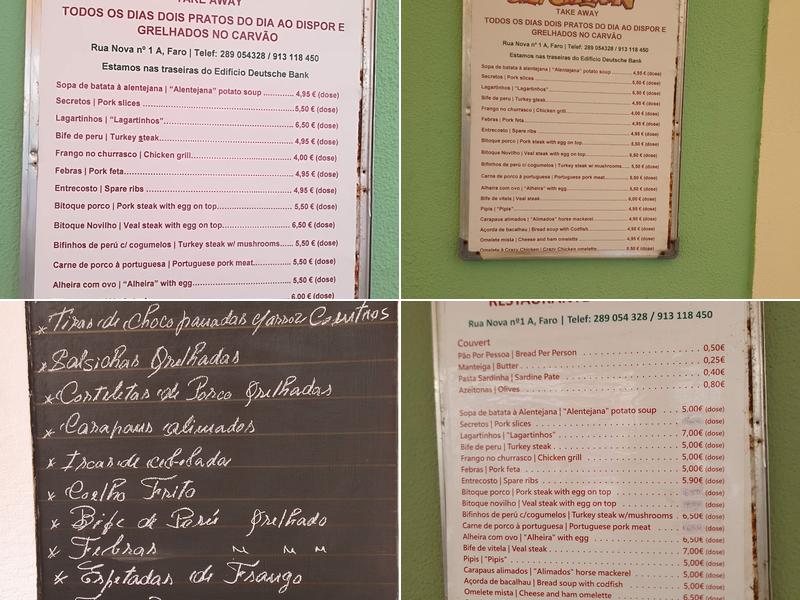 TAKE AWAY
TODOS OS DIAS DOIS PRATOS DO DIA AO DISPOR E
GRELHADOS NO CARVÃO
Rua Nova nº 1 A, Faro | Telef: 289 054328 / 913 118 450
Estamos nas traseiras do Edificio Deutsche Bank
Sopa de batata à alentejana | "Alentejana" potato soup ........... 4,95 € (dose)
Secretos | Pork slices ........... 5,50 € (dose)
Lagartinhos | "Lagartinhos" ........... 6,50 € (dose)
Bife de peru | Turkey steak ........... 4,95 € (dose)
Frango no churrasco | Chicken grill ........... 4,00 € (dose)
Febras | Pork feta ........... 4,95 € (dose)
Entrecosto | Spare ribs ........... 4,95 € (dose)
Bitoque porco | Pork steak with egg on top ........... 5,50 € (dose)
Bitoque Novilho | Veal steak with egg on top ........... 6,50 € (dose)
Bifinhos de perú c/ cogumelos | Turkey steak w/ mushrooms ...... 5,50 € (dose)
Carne de porco à portuguesa | Portuguese pork meat ........... 5,50 € (dose)
Alheira com ovo | "Alheira" with egg ........... 5,50 € (dose)
6,00 € (dose)
TAKE AWAY
TODOS OS DIAS DOIS PRATOS DO DIA AO DISPOR E
GRELHADOS NO CARVÃO
Rua Nova nº 1 A, Faro | Telef: 289 054328 / 913 118 450
Estamos nas traseiras do Edificio Deutsche Bank
Sopa de batata à alentejana | "Alentejana" potato soup ........... 4,95 € (dose)
Secretos | Pork slices ........... 5,50 € (dose)
Lagartinhos | "Lagartinhos" ........... 6,50 € (dose)
Bife de peru | Turkey steak ........... 4,95 € (dose)
Frango no churrasco | Chicken grill ........... 4,00 € (dose)
Febras | Pork feta ........... 4,95 € (dose)
Entrecosto | Spare ribs ........... 4,95 € (dose)
Bitoque porco | Pork steak with egg on top ........... 5,50 € (dose)
Bitoque Novilho | Veal steak with egg on top ........... 6,50 € (dose)
Bifinhos de perú c/ cogumelos | Turkey steak w/ mushrooms ...... 5,50 € (dose)
Carne de porco à portuguesa | Portuguese pork meat ........... 5,50 € (dose)
Alheira com ovo | "Alheira" with egg ........... 5,50 € (dose)
Bife de vitela | Veal steak ........... 6,00 € (dose)
Pipis | "Pipis" ........... 4,95 € (dose)
Carapaus alimados | "Alimados" horse mackerel ........... 4,95 € (dose)
Açorda de bacalhau | Bread soup with Codfish ........... 4,95 € (dose)
Omelete mista | Cheese and ham omelette ........... 4,95 € (dose)
Omelete à Crazy Chicken | Crazy Chicken omelette ........... 5,50 € (dose)
* Tiras de Choco panadas c/arroz Coentros
* Salsichas Grelhadas
* Costeletas de Porco Grelhadas
* Carapaus alimados
* Iscas de cebolada
* Coelho Frito
* Bife de Perú Grelhado
* Febras " " "
* Espetadas de Frango
RESTAURANTE
Rua Nova nº1 A, Faro | Telef: 289 054 328 / 913 118 450
Couvert
Pão Por Pessoa | Bread Per Person ........... 0,50€
Manteiga | Butter ........... 0,25€
Pasta Sardinha | Sardine Pate ........... 0,40€
Azeitonas | Olives ........... 0,80€
Sopa de batata à Alentejana | "Alentejana" potato soup ..... 5,00€ (dose)
Secretos | Pork slices ........... (dose)
Lagartinhos | "Lagartinhos" ........... 7,00€ (dose)
Bife de peru | Turkey steak ........... 5,00€ (dose)
Frango no churrasco | Chicken grill ........... 5,00€ (dose)
Febras | Pork feta ........... 5,00€ (dose)
Entrecosto | Spare ribs ........... 5.90€ (dose)
Bitoque porco | Pork steak with egg on top ........... (dose)
Bitoque novilho | Veal steak with egg on top ........... (dose)
Bifinhos de perú c/cogumelos | Turkey steak w/mushrooms .. 6,50€ (dose)
Carne de porco à portuguesa | Portuguese pork meat ........... (dose)
Alheira com ovo | "Alheira" with egg ........... 6,50€ (dose)
Bife de vitela | Veal steak ........... 7,00€ (dose)
Pipis | "Pipis" ........... 5,00€ (dose)
Carapaus alimados | "Alimados" horse mackerel ........... 5,00€ (dose)
Açorda de bacalhau | Bread soup with codfish ........... 5,00€ (dose)
Omelete mista | Cheese and ham omelette ........... 6,50€ (dose)